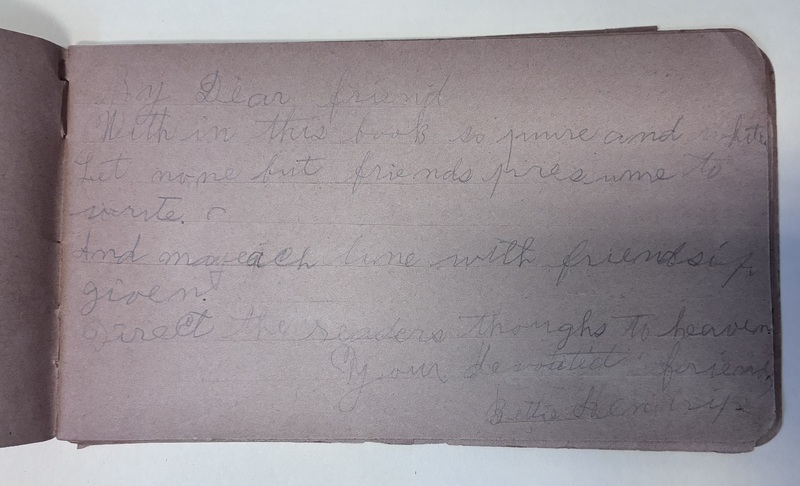 My Dear friend
With in this book so puure and white
Let none but friends presume to
write.
And may each line with friendsip
given
Direct the readers thoughs to heaven
Your devoatid friend
Bettie